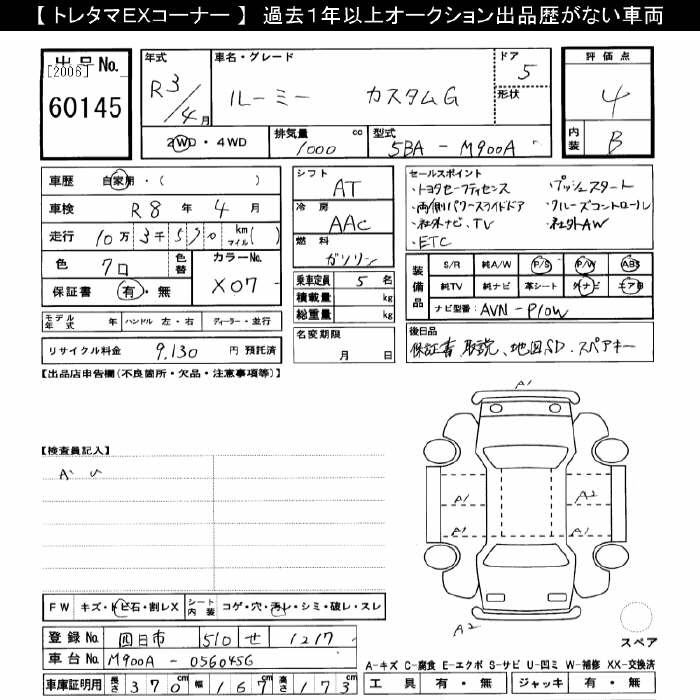 【 トレタマEXコーナー 】 過去1年以上オークション出品歴がない車両
出品No. [2006] 60145
年式 R3/4月
車名・グレード ルーミー カスタムG
ドア 5
形状
評価点 4
内装 B
2WD・4WD
排気量 1000 cc
型式 5BA - M900A
車歴 自家用・( )
車検 R8年4月
走行 10万3千570 km マイル( )
色 クロ
色替
カラーNo. X07
保証書 有・無
モデル年式 年 ハンドル 左・右 ディーラー・並行
リサイクル料金 9,130 円 預託済
シフト AT
冷房 AAC
燃料 ガソリン
乗車定員 5 名
積載量 kg
総重量 kg
名変期限 月 日
セールスポイント
・トヨタセーフティセンス ・プッシュスタート
・両側パワースライドドア ・クルーズコントロール
・社外ナビ、TV ・社外AW
・ETC
装備品 S/R 純A/W P/S P/W ABS
純TV 純ナビ 革シート 外ナビ エア用
ナビ型番: AVN-P10W
後日品
保証書、取説、地図SD、スペアキー
【出品店申告欄(不良箇所・欠品・注意事項等)】
【検査員記入】
A1
A1 A2
A1 A1
A2
スペア
FW キズ・トビ石・割レX シート内装 コゲ・穴・汚レ・シミ・破レ・スレ
登録No. 四日市 510 せ 1217
車台No. M900A - 0560456
車庫証明用 長さ 370cm 幅 167cm 高さ 173cm
A-キズ C-腐食 E-エクボ S-サビ U-凹ミ W-補修 XX-交換済
工具 有・無 ジャッキ 有・無